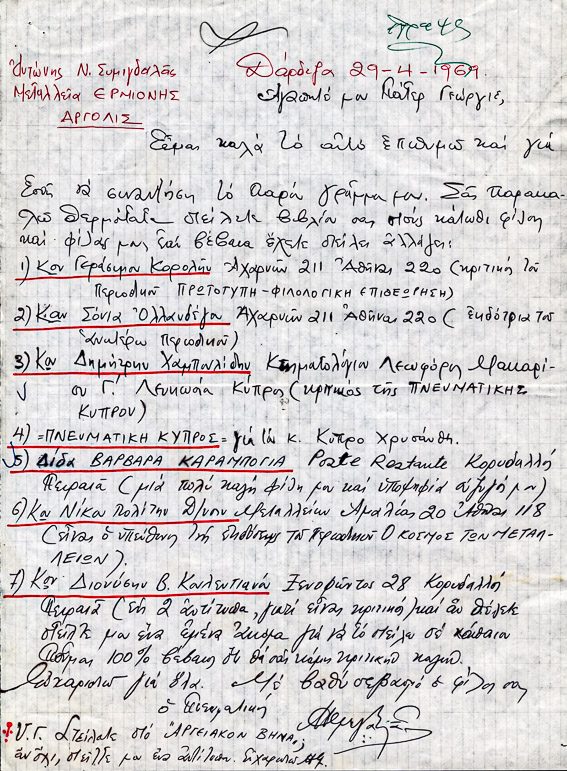 Ἀντώνης Ν. Συμιγδαλᾶς
Μεταλλεῖα ΕΡΜΙΟΝΗΣ
ΑΡΓΟΛΙΣ
Δάρδεζα 29-4-1969
Ἀγαπητέ μου Πάτερ Γεώργιε,
Εἶμαι καλά τό αὐτό ἐπιθυμῶ καί γιά
Ἐσᾶς νά συναντήση τό παρόν γράμμα μου. Σᾶς παρακα-
λῶ θερμότατα στείλετε βιβλίον σας στούς κάτωθι φίλους
καί φίλας μου, ἐάν βέβαια ἔχετε στείλει ἀλλάγει:
1) Κον Γεράσιμον Ἀχαρνῶν 211 Ἀθῆναι 220 (κριτικός τοῦ
Περιοδικοῦ ΠΡΩΤΟΤΥΠΗ-ΦΙΛΟΛΟΓΙΚΗ ΕΠΙΘΕΩΡΗΣΗ)
2) Κίαν Σόνια Ἀχαρνῶν 211 Ἀθῆναι 220 (ἐκδότρια τοῦ
ἀνωτέρω περιοδικοῦ)
3) Κον Δημήτρην Χαμπουλίδην Κτηματολόγιον Λεωφόρος Μακαρί-
ου Γ΄. Λευκωσία Κύπρος (κριτικός τῆς ΠΝΕΥΜΑΤΙΚΗΣ
ΚΥΠΡΟΥ)
4) =ΠΝΕΥΜΑΤΙΚΗ ΚΥΠΡΟΣ= γιά τόν κ. Κύπρο Χρυσάνθη.
5) Δίδα ΒΑΡΒΑΡΑ ΚΑΡΑΜΠΟΓΙΑ Poste Restante Κορυδαλλός
Πειραιᾶ (μιά πολύ καλή φίλη μου καί ὑποψηφία σύζυγός μου)
6) Κον Νίκον Πολίτην Δ/νσιν Μεταλλείων Ἀμαλίας 20 Ἀθῆναι 118
(εἶναι ὁ ὑπεύθυνος τῆς ἐκδόσεως τοῦ περιοδικοῦ Ο ΚΟΣΜΟΣ ΤΩΝ ΜΕΤΑΛ-
ΛΕΙΩΝ).
7) Κον Διονύσιον Β. Κουλεντιανό Ξενοφῶντος 28 Κορυδαλλός
Πειραιᾶ (εἰς 2 ἀντίτυπα, γιατί εἶναι κριτικός) καί ἄν θέλετε
στεῖλτε μου ἕνα ἐμένα ἀκόμα γιά νά τό στείλω σέ κάποιον
100% βέβαιος ὅτι θά σᾶς κάμη κριτική καλή.
Εὐχαριστῶ γιά ὅλα. Μέ βαθύ σεβασμό ὁ φίλος σας
ὁ
Υ.Γ. Στείλατε στό "ΑΡΓΕΙΑΚΟΝ ΒΗΜΑ";
ἄν ὄχι, στεῖλτε μου ἕνα ἀντίτυπον. Εὐχαριστῶ